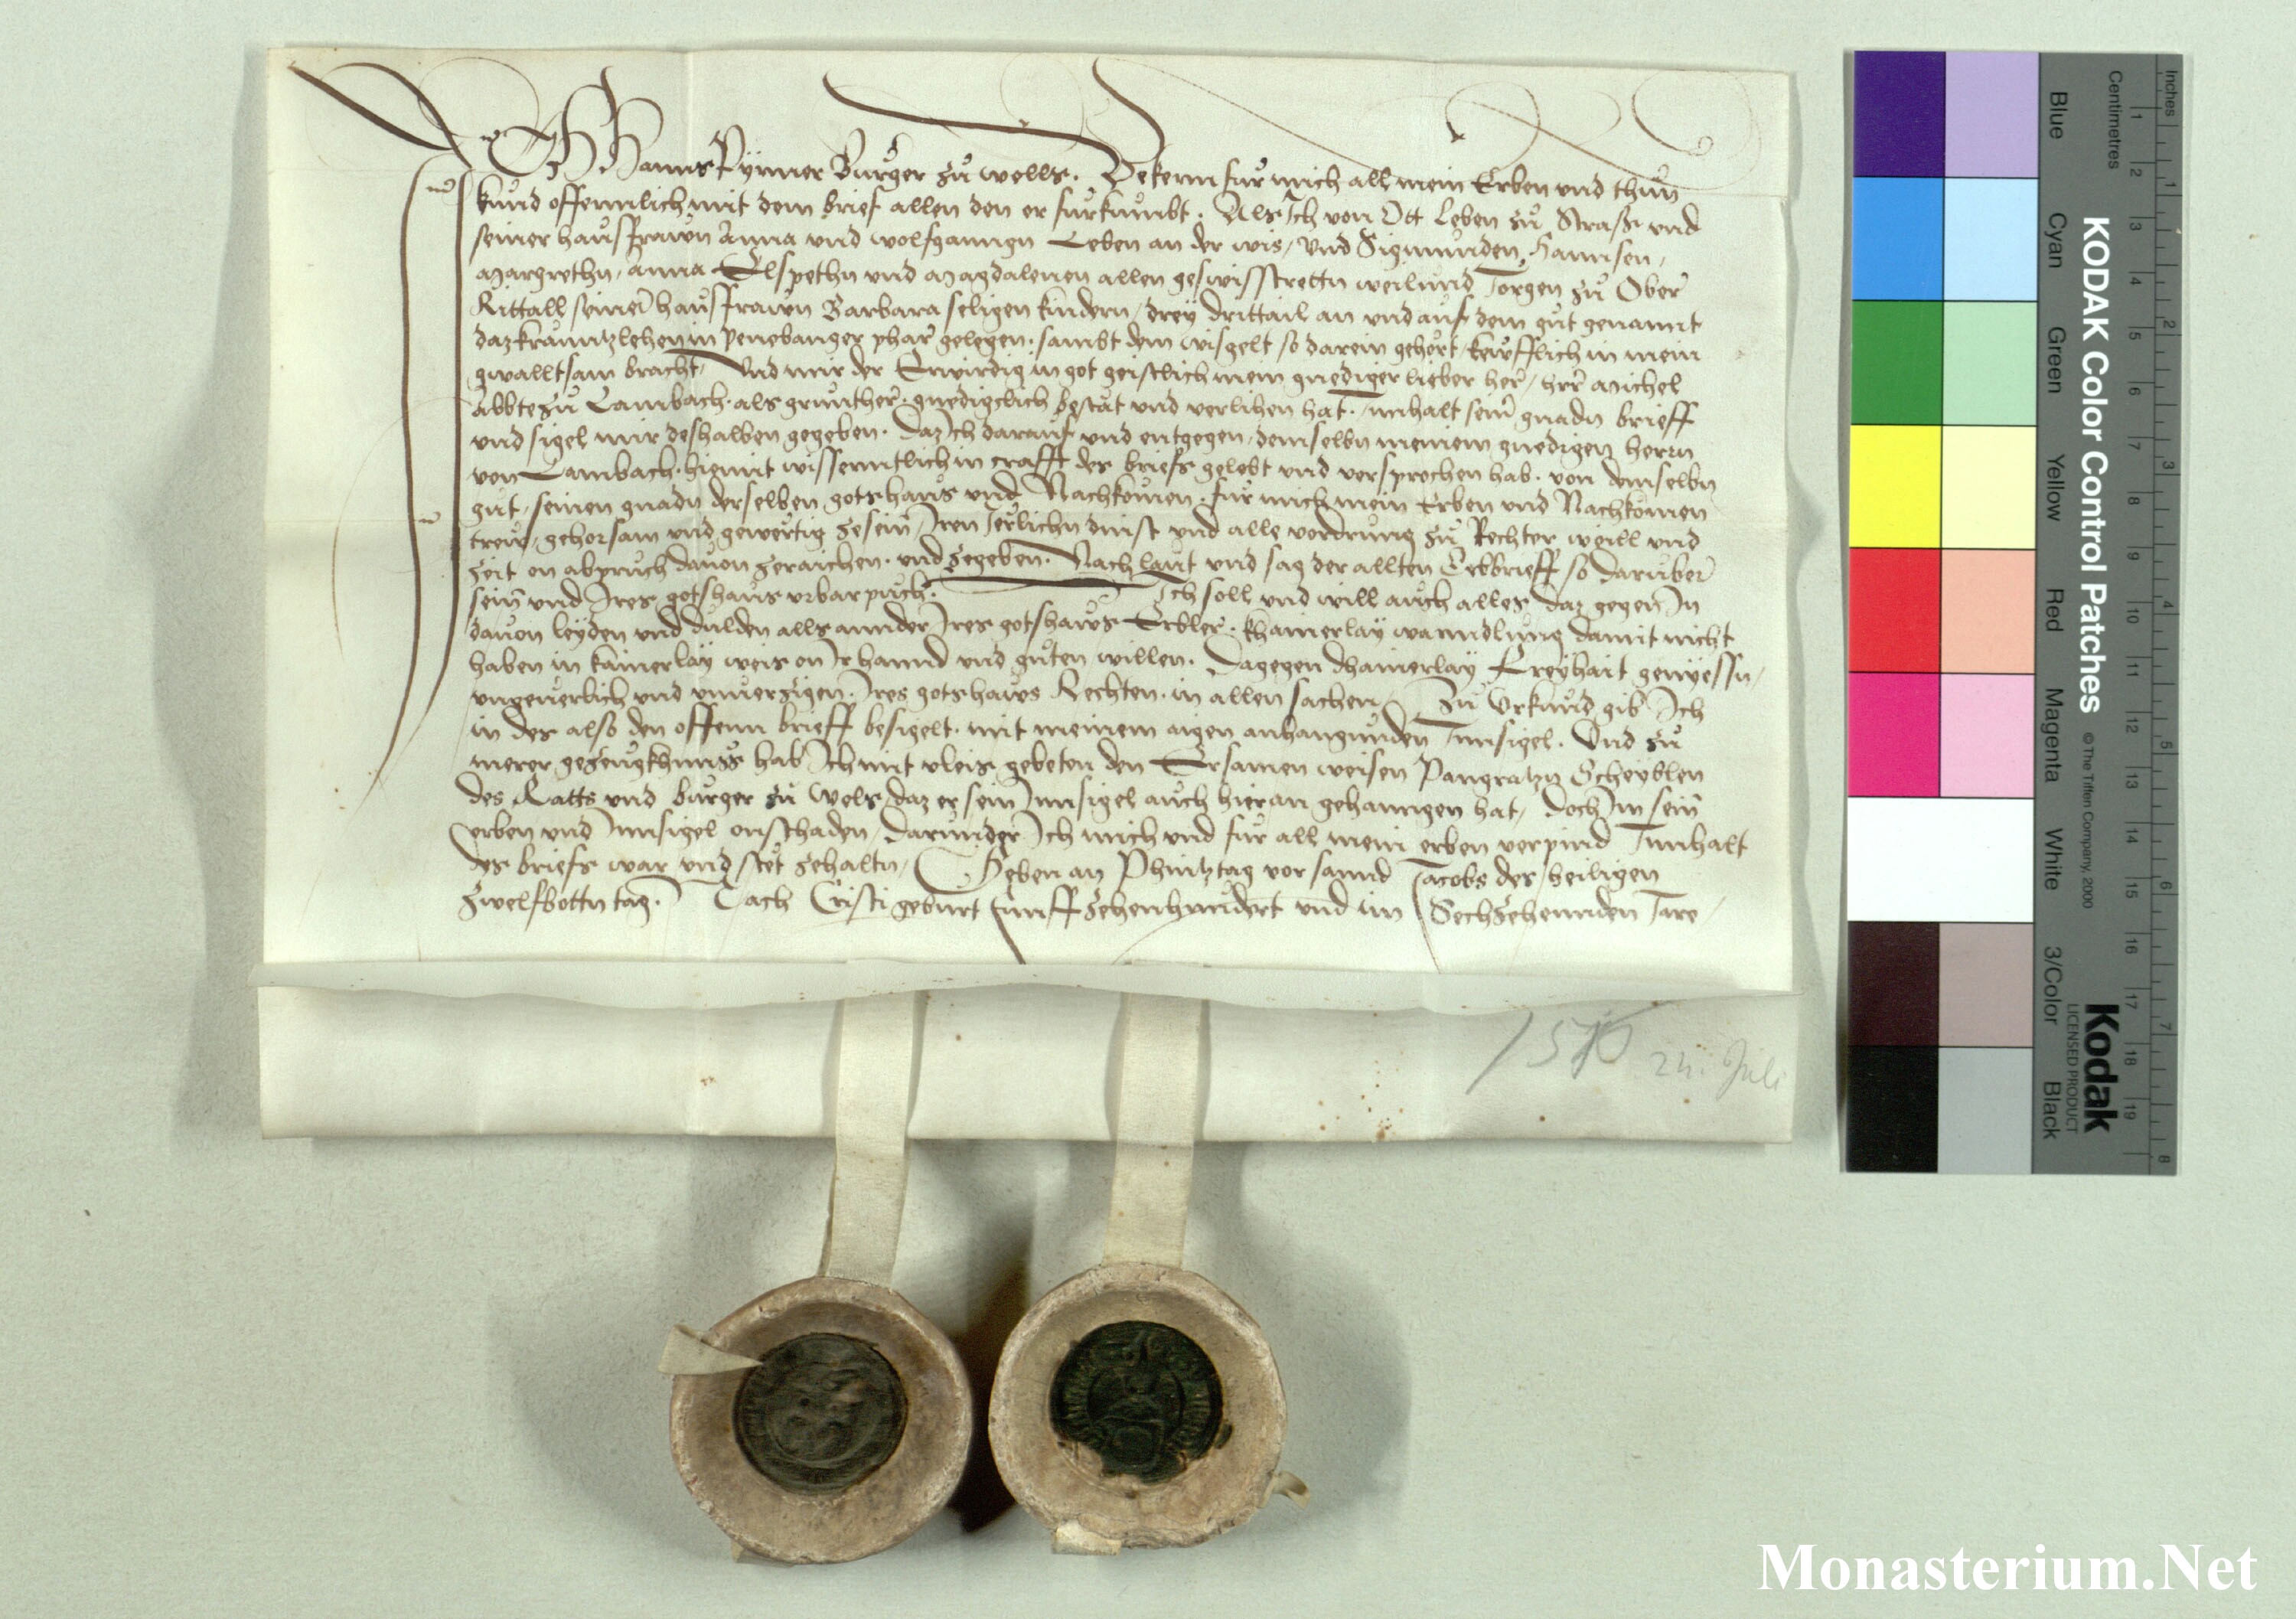 Ich Hanns Pÿmer Burger zu wells. Bekenn fur mich all mein Erben vnd thun
kund offennlich mit dem brief allen den er furkumbt. Als Ich von Ott Leben zu Straß vnd
seiner hausfrawn Anna vnd wolfganngn Leben an der wis, vnd Sigmunden, Hannsen,
Margrethn, Anna Elspethn vnd Magdalenen allen geswisstrettn weilund Jorgen zu Ober
Rittall seiner hausfrawn Barbara seligen kindern, dreÿ drittail an vnd auf dem gut genannt
daz kranntzlehen in penebanger phar gelegen. sambt dem wisgelt so darein gehort, kewfflich in mein
gwalltsam bracht, Vnd mir der Erwirdig in got geistlich mein gnediger lieber her, herr Michel
Abbte zu Lambach. als grunther. gnedigclich bestat vnd verlihen hat. innhalt seiner gnadn brieff
vnd sigel mir deshalben gegeben. Daz Ich darauf vnd entgegen, demselbn meinem gnedigen herrn
von Lambach. hiemit wissenntlich in crafft des briefs gelobt vnd versprochen hab. von demselbn
gut, seinen gnadn derselben gotshaus vnd Nachkomen. fur mich mein Erben vnd Nachkomen
trew, gehorsam vnd gewertig zesein, Iren Jerlichn dinst vnd alle vordrung zu Rechter weill vnd
zeit on abpruch dauon zeraichen. vnd zegeben. Nach laut vnd sag der allten Erbbrieff so daruber
sein vnd Ires gotshaus vrbarpuch. Ich soll vnd will auch alles daz gegen In
dauon leÿden vnd dulden alls annder Ires gotshaws Erbler. khainerlaÿ wanndlung damit nicht
haben in kainerlaÿ weis on Ir hannd vnd guten willen. Dagegen dhainerlaÿ Freÿhait genÿessn,
vngeuerlich vnd vnuerzigen. Ires gotshaws Rechten. in allen sachen, Zu Vrkund gib Ich
in des also den offenn brieff besigelt. mit meinem aigen anhangunden Innsigel. Vnd zu
merer gezeugkhnuss hab Ich mit vleis gebeten den Ersamen weisen Pangratzn Scheyblen
des Ratts vnd burger zu Wels, daz er sein Innsigel auch hieran gehanngen hat, doch Im sein
erben vnd Innsigel on schaden, darunder Ich mich vnd fur all mein erben verpind Innhalt
des briefs war vnd stet zehaltn, Geben an Phintztag vor sannd Jacobs des heiligen
zwelfbottn tag. Nach Cristi geburt funffzehenhundert vnd im Sechzehennden Jare,
1516 24. Juli
KODAK Color Control Patches © The Tiffen Company, 2000
Kodak
LICENSED PRODUCT
Blue Cyan Green Yellow Red Magenta White 3/Color Black
Inches 1 2 3 4 5 6 7 8
Centimetres 1 2 3 4 5 6 7 8 9 10 11 12 13 14 15 16 17 18 19
Monasterium.Net